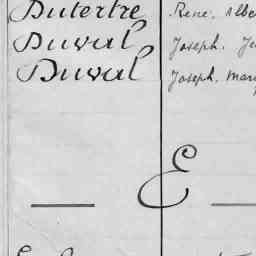 Dutertre René, Albe
Duval Joseph, Je
Duval Joseph, Mary
E